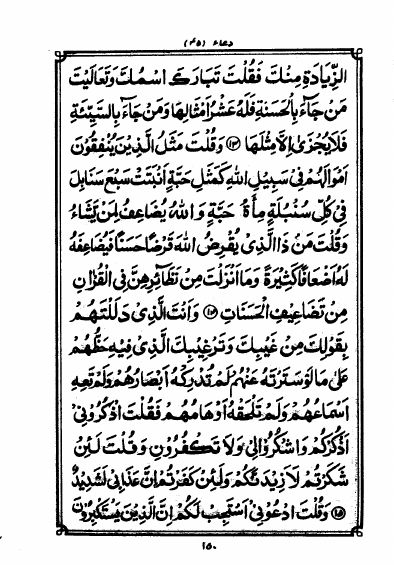 دعاء (۴۵)
الزِّيَادَةِ مِنْكَ فَقُلْتَ تَبَارَكَ اسْمُكَ وَتَعَالَيْتَ
مَنْ جَآءَ بِالْحَسَنَةِ فَلَهُ عَشْرُ اَمْثَالِهَا وَمَنْ جَآءَ بِالسَّيِّئَةِ
فَلَا يُجْزٰى اِلَّا مِثْلَهَا ⑬ وَقُلْتَ مَثَلُ الَّذِيْنَ يُنْفِقُوْنَ
اَمْوَالَهُمْ فِيْ سَبِيْلِ اللهِ كَمَثَلِ حَبَّةٍ اَنْبَتَتْ سَبْعَ سَنَابِلَ
فِيْ كُلِّ سُنْبُلَةٍ مِأَةُ حَبَّةٍ وَاللهُ يُضَاعِفُ لِمَنْ يَّشَاءُ
وَقُلْتَ مَنْ ذَا الَّذِيْ يُقْرِضُ اللهَ قَرْضًا حَسَنًا فَيُضَاعِفَهُ
لَهُ اَضْعَافًا كَثِيْرَةً وَمَا اَنْزَلْتَ مِنْ نَظَائِرِهِنَّ فِي الْقُرْاٰنِ
مِنْ تَضَاعِيْفِ الْحَسَنَاتِ ⑭ وَاَنْتَ الَّذِيْ دَلَلْتَهُمْ
بِقَوْلِكَ مِنْ غَيْبِكَ وَتَرْغِيْبِكَ الَّذِيْ فِيْهِ حَظُّهُمْ
عَلٰى مَا لَوْ سَتَرْتَهُ عَنْهُمْ لَمْ تُدْرِكْهُ اَبْصَارُهُمْ وَلَمْ تَعِهِ
اَسْمَاعُهُمْ وَلَمْ تَلْحَقْهُ اَوْهَامُهُمْ فَقُلْتَ اذْكُرُوْنِيْ
اَذْكُرْكُمْ وَاشْكُرُوْا لِيْ وَلَا تَكْفُرُوْنِ وَقُلْتَ لَئِنْ
شَكَرْتُمْ لَاَزِيْدَنَّكُمْ وَلَئِنْ كَفَرْتُمْ اِنَّ عَذَابِيْ لَشَدِيْدٌ
⑮ وَقُلْتَ ادْعُوْنِيْ اَسْتَجِبْ لَكُمْ اِنَّ الَّذِيْنَ يَسْتَكْبِرُوْنَ
۱۵۰